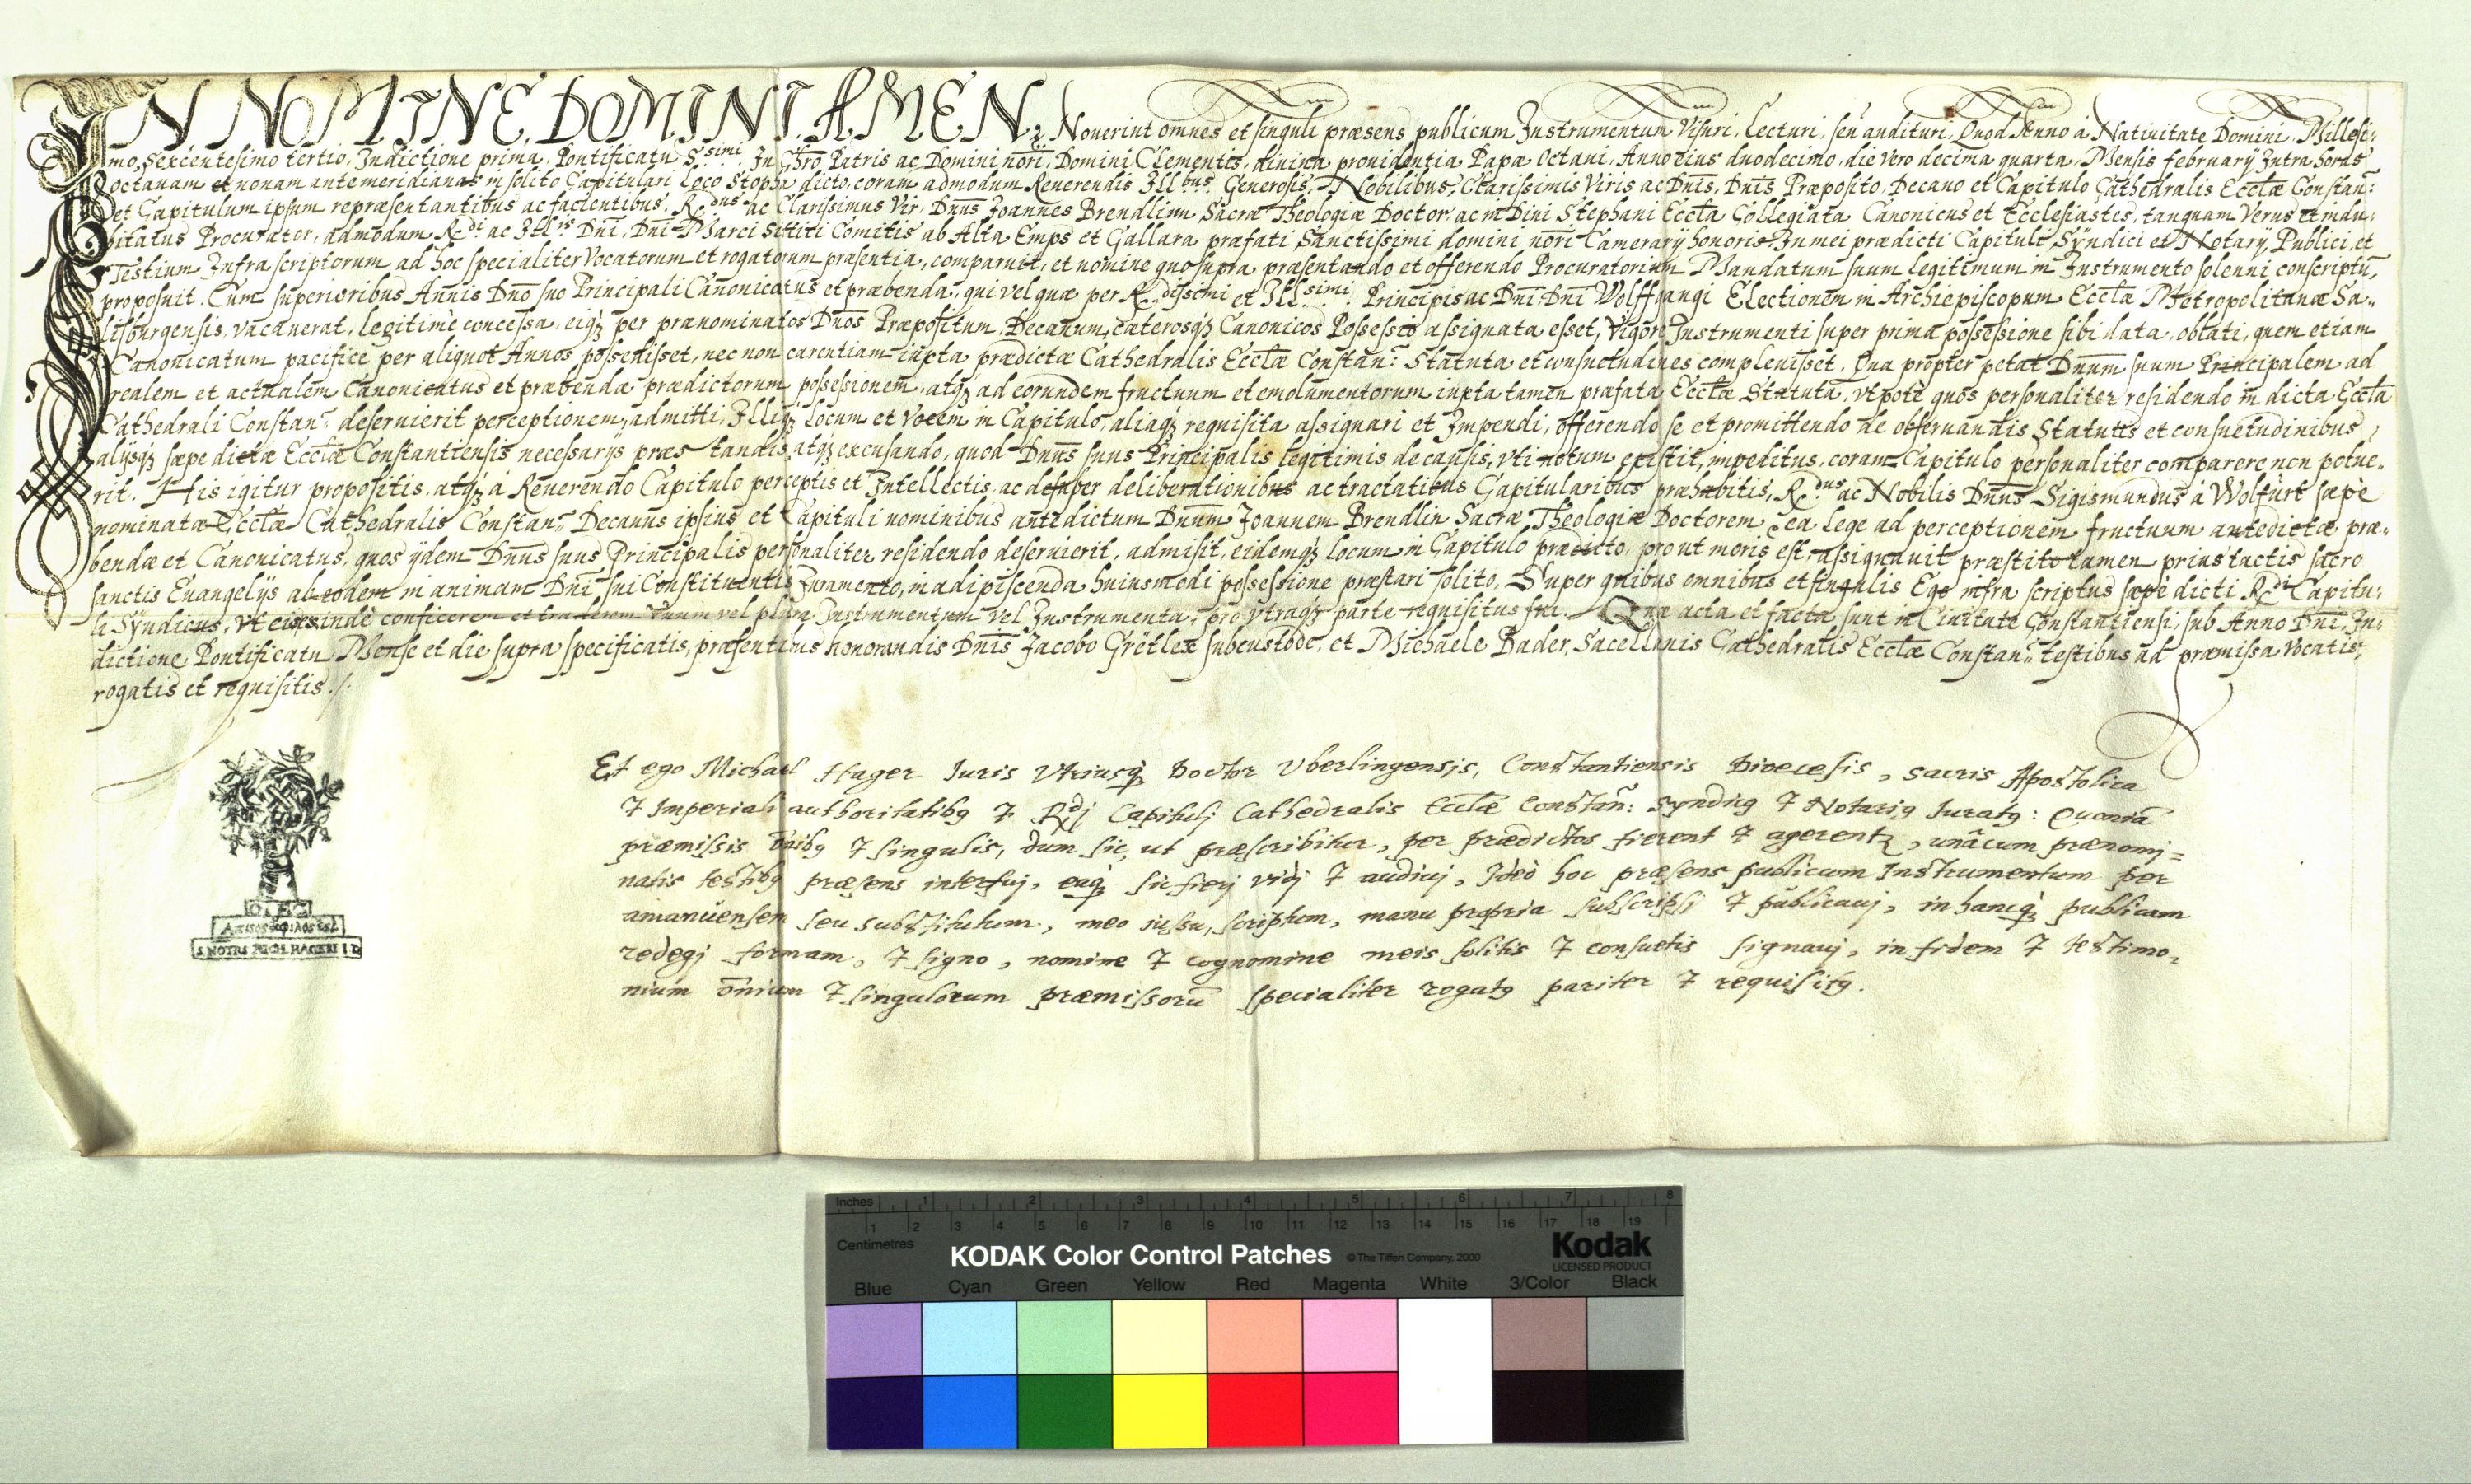 IN NOMINE DOMINI AMEN. Nouerint omnes et singuli præsens publicum Instrumentum Visuri, lecturi, seu audituri, Quod Anno à Natiuitate Domini, Millesi-
mo, Sexcentesimo tertio, Indictione prima, Pontificatu S.simi In Chro Patris ac Domini nōri, Domini Clementis, diuina prouidentia Papæ Octaui, Anno eius duodecimo, die vero decima quarta, Mensis february Intra horas
octauam et nonam antemeridianas in solito Capitulari loco Stopha dicto, coram admodum Reuerendis Illbus Generosis, Nobilibus, Clarissimis Viris ac Dnis, Dnis Præposito, Decano et Capitulo Cathedralis Ecclæ Constan:
et Capitulum ipsum repræsentantibus ac facientibus, R.dus ac Clarissimus Vir, Dnus Joannes Brendlin Sacræ Theologiæ Doctor, ac in Diui Stephani Eccla Collegiata Canonicus et Ecclesiastes, tanquam Verus et indu-
bitatus Procurator, admodum R.di ac Illris Dni, Dni Marci Sittici Comitis ab Alta Emps et Gallara præfati Sanctissimi domini nōri Camerarÿ honoris. In mei prædicti Capituli Sÿndici et Notarÿ Publici, et
Testium Infra scriptorum ad hoc specialiter Vocatorum et rogatorum præsentia, comparuit, et nomine quo supra præsentando et offerendo Procuratorium Mandatum suum legitimum in Instrumento solenni conscriptū,
proposuit. Cum superioribus Annis Dno suo Principali Canonicatus et præbenda, qui vel quæ per R.dissimi et Ill.simi Principis ac Dni Dni Wolffgangi Electionem in Archiepiscopum Ecclæ Metropolitanæ Sa-
lisburgensis, vacauerat, legitimè concessa, eiqʒ per prænominatos Dnos Præpositum, Decanum, cæterosqʒ Canonicos Possessio assignata esset, Vigore Instrumenti super prima possessione sibi data, oblati, quem etiam
Canonicatum pacifice per aliquot Annos possedisset, nec non carentiam iuxta prædictæ Cathedralis Ecclæ Constan: Statuta et consuetudines compleuisset. Qua propter petat Dnum suum Principalem ad
realem et actualem Canonicatus et præbendæ prædictorum possessionem, atqʒ ad eorundem fructuum et emolumentorum iuxta tamen præfata Ecclæ Statuta, vtpote quos personaliter residendo in dicta Eccla
Cathedrali Constan: deseruierit perceptionem, admitti, Illiqʒ locum et Vocem in Capitulo, aliaqʒ requisita assignari et Impendi, offerendo se et promittendo de obseruandis Statutis et consuetudinibus,
alÿsqʒ sæpe dictæ Ecclæ Constantiensis necessarÿs præstandis, atqʒ excusando, quod Dnus suus Principalis legitimis de causis, vti notum existit, impeditus, coram Capitulo personaliter comparere non potue-
rit. His igitur propositis, atqʒ à Reuerendo Capitulo perceptis et Intellectis, ac desuper deliberationibus ac tractatibus Capitularibus præhabitis, R.dus ac Nobilis Dnus Sigismundus à Wolfurt sæpè
nominatæ Ecclæ Cathedralis Constan: Decanus ipsius et Capituli nominibus antedictum Dnum Joannem Brendlin Sacræ Theologiæ Doctorem ea lege ad perceptionem fructuum antedictæ præ-
bendæ et Canonicatus, quos ÿdem Dnus suus Principalis personaliter residendo deseruierit, admisit, eidemqʒ locum in Capitulo prædicto, prout moris est, assignauit præstito tamen prius tactis sacro
sanctis Euangelÿs ab eodem in animam Dni sui Constituentis Iuramento, in adipiscenda huiusmodi possessione præstari solito. Super quibus omnibus et singulis Ego infra scriptus sæpè dicti R.di Capitu-
li Sÿndicus, vt eis exindè conficerem et traderem vnum vel plura Instrumentum vel Instrumenta, pro vtraqʒ parte requisitus fui. Quæ acta et facta sunt in Ciuitate Constantiensi, sub Anno Dni, In-
dictione, Pontificatu Mense et die supra specificatis, præsentibus honorandis Dnis Jacobo Gretler subcustode, et Michaele Bader, Sacellanis Cathedralis Ecclæ Constan: testibus ad præmissa Vocatis,
rogatis et requisitis.
Et ego Michael Hager Iuris Vtriusqʒ Doctor Vberlingensis, Constantiensis Dioecesis, sacris Apostolica
& Imperiali authoritatibꝰ & R.dj Capitulj Cathedralis Ecclæ Constañ: Syndicꝰ & Notariꝰ Iuratꝰ: Quoniā
præmissis ōnibꝰ & singulis, dum sic, ut præscribitur, per prædictos fierent & agerentꝛ, unàcum prænomi=
natis testibꝰ præsens interfuj, eaqʒ sic fierj vidj & audiuj, Ideò hoc præsens publicum Instrumentum per
amanuensem seu substitutum, meo iussu, scriptum, manu propria subscripsj & publicauj, in hancqʒ publicam
redegj formam, & signo, nomine & cognomine meis solitis & consuetis signauj, in fidem & testimo-
nium ōnium & singulorum præmissorū specialiter rogatꝰ pariter & requisitꝰ.
Inches 1 2 3 4 5 6 7 8
1 2 3 4 5 6 7 8 9 10 11 12 13 14 15 16 17 18 19
Centimetres
KODAK Color Control Patches © The Tiffen Company, 2000 Kodak
LICENSED PRODUCT
Blue Cyan Green Yellow Red Magenta White 3/Color Black